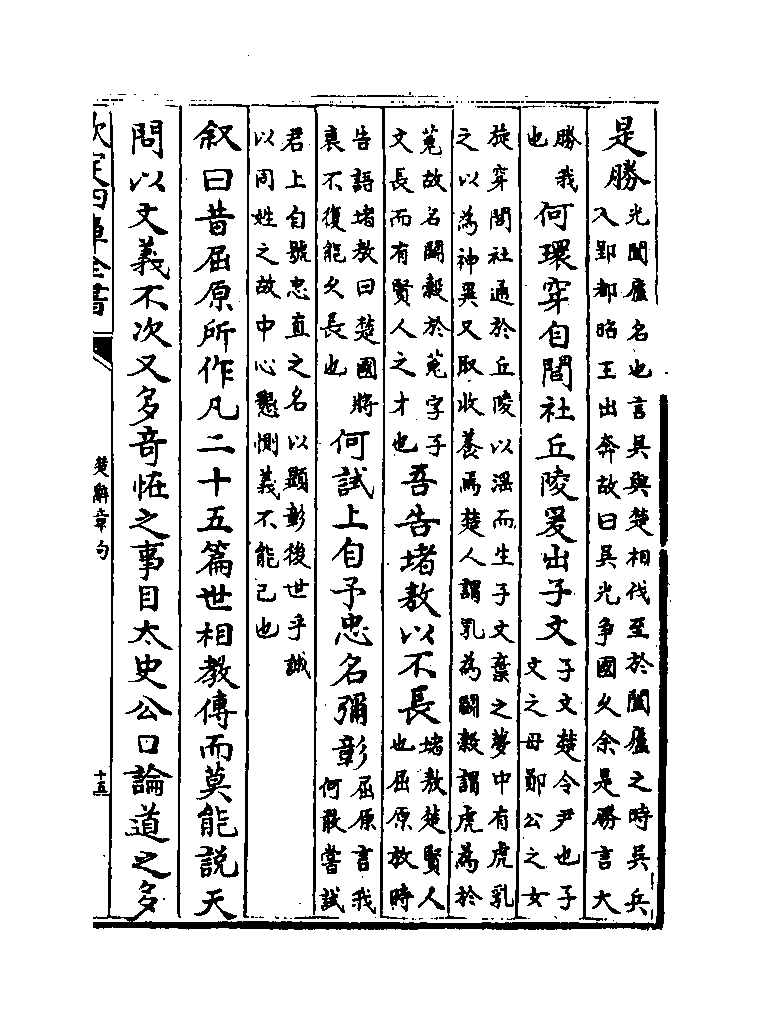 是勝光闔廬名也言吳與楚相伐至於闔廬之時吳兵
入郢都昭王出奔故曰吳光争國久余是勝言大
勝我
也何環穿自閭社丘陵爰出子文子文楚令尹也子
文之母鄖公之女
旋穿閭社通於丘陵以淫而生子文棄之夢中有虎乳
之以為神異又取收養焉楚人謂乳為鬭穀謂虎為於
菟故名鬭穀於菟字子
文長而有賢人之才也吾告堵敖以不長堵敖楚賢人
也屈原放時
告語堵敖曰楚國將
衰不復能久長也何試上自予忠名彌彰屈原言我
何敢嘗試
君上自號忠直之名以顯彰後世乎誠
以同姓之故中心懇惻義不能已也
叙曰昔屈原所作凡二十五篇世相教傳而莫能說天
問以文義不次又多竒怪之事自太史公口論道之多
欽定四庫全書
楚辭章句
十五